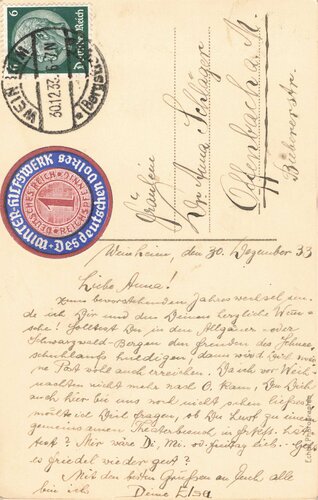 6
Deutsches Reich
WEINHEIM
30.12.33
(Bergstr.)
Winter-Hilfswerk
Des deutschen Volkes
DEUTSCHES REICH
1
REICHSPFENNIG
Fräulein
Dr. Anna Schläger
Offenbach a. M.
Biebererstr.
Weinheim, den 30. Dezember 33
Liebe Anna!
Zum bevorstehenden Jahreswechsel sen-
de ich Dir und den Deinen herzliche Wün-
sche! Solltest Du in den Allgäuer - oder
Schwarzwald-Bergen den Freuden des Schnee-
schuhlaufs huldigen, dann wird Dich meine
Post wohl auch erreichen. Da ich vor Weih-
nachten nicht mehr nach O. kam, Du Dich
auch hier bei uns noch nicht sehen liessest
möchte ich Dich fragen, ob Du Lust zu einem
gemeinsamen Theaterbesuch in
hättest? Mir wäre Di. Mi. od. Freitag
Geht
es Friedel wieder gut?
Mit den besten Grüßen an Euch alle
bin ich Deine Elsa